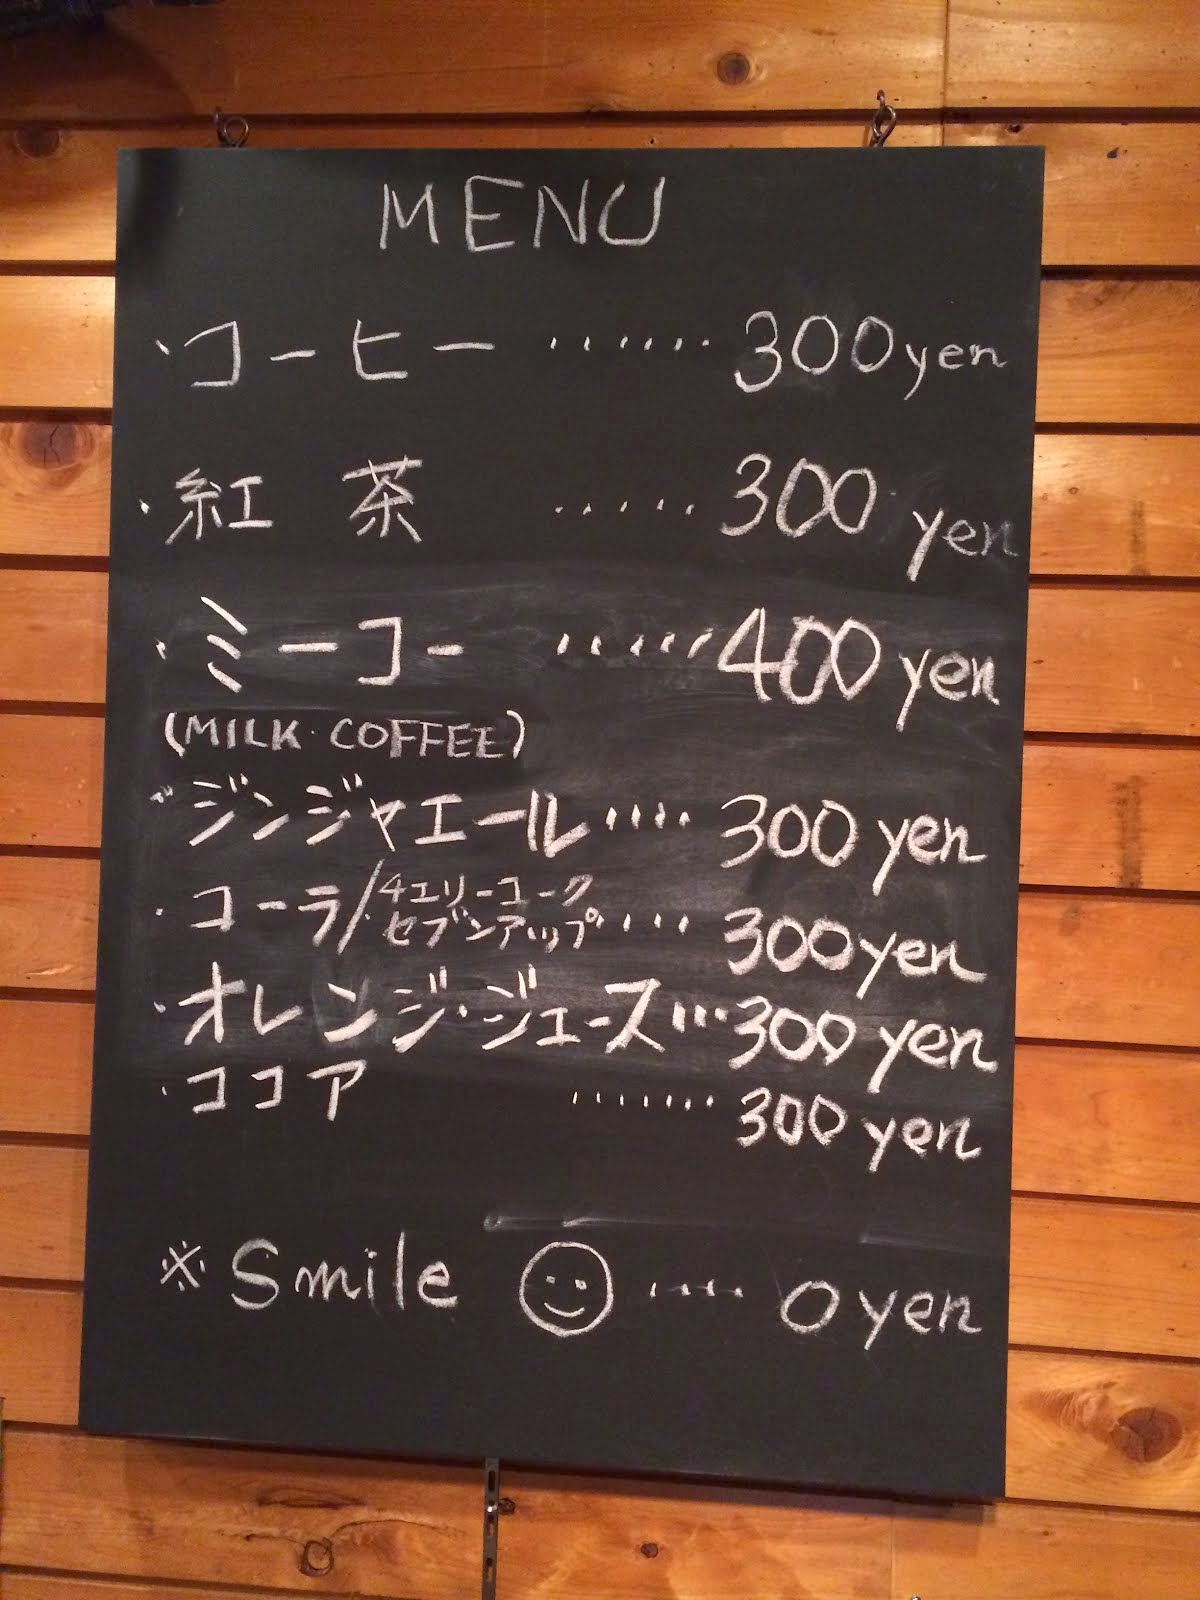 MENU
・コーヒー ・・・・・・ 300yen
・紅 茶 ・・・・・ 300 yen
・ミーコー ・・・・・・ 400 yen
(MILK・COFFEE)
・ジンジャエール ・・・・ 300 yen
・コーラ/チェリーコーク
セブンアップ ・・・・ 300yen
・オレンジ・ジュース ・・・ 300 yen
・ココア ・・・・・・・ 300 yen
※ Smile ☺ ・・・・ 0 yen